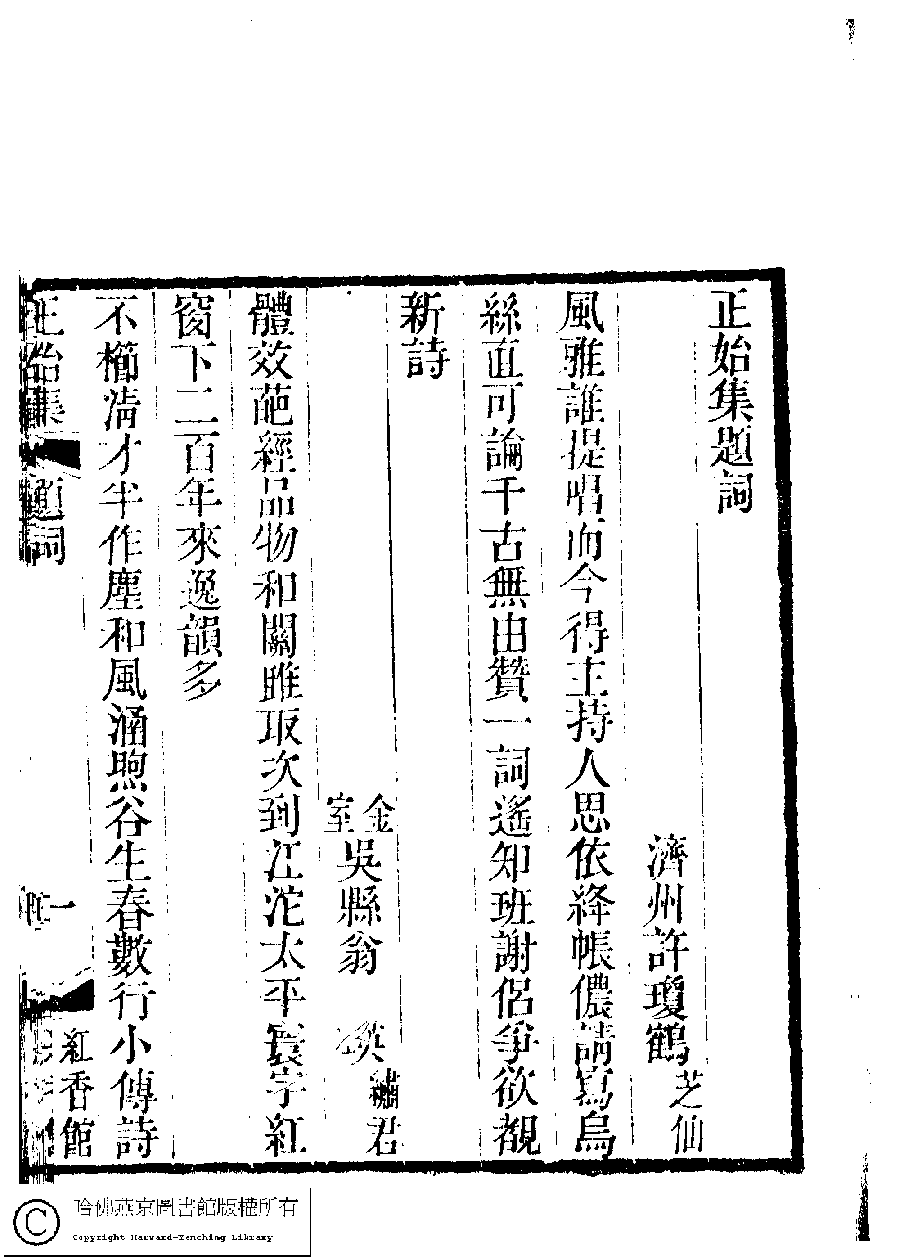 正始集題詞
濟州許瓊鶴芝仙
風雅誰提唱而今得主持人思依絳帳儂請寫烏
絲直可論千古無由贊一詞遙知班謝侶爭欲覩
新詩
金室吳縣翁瑛繡君
體效葩經品物和關雎取次到江沱太平寰宇紅
窗下二百年來逸韻多
不櫛淸才半作塵和風涵煦谷生春數行小傳詩
正始集 題詞 一 紅香館
哈佛燕京圖書館版權所有
Copyright Harvard-Yenching Library